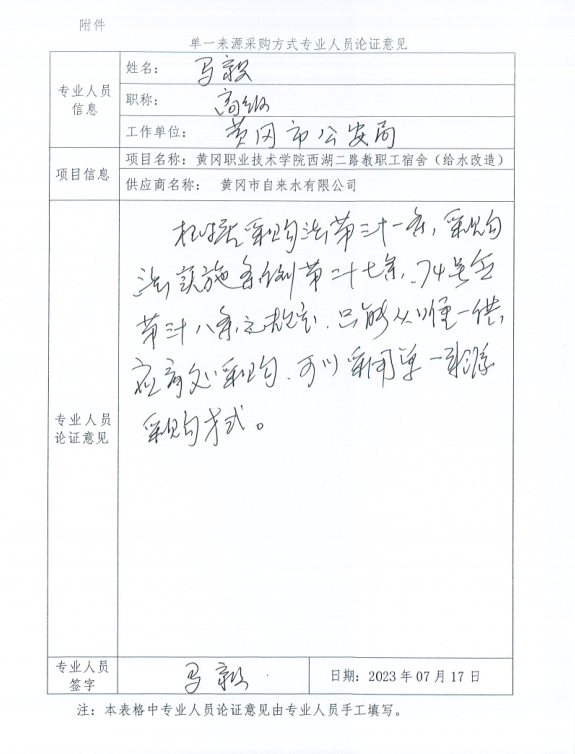 附件
单一来源采购方式专业人员论证意见
专业人员信息
姓名： 马毅
职称： 高级
工作单位： 黄冈市公安局
项目信息
项目名称：黄冈职业技术学院西湖二路教职工宿舍（给水改造）
供应商名称： 黄冈市自来水有限公司
专业人员论证意见
根据采购法第三十一条，采购
法实施条例第二十七条、74号令
第三十八条之规定，只能从唯一供
应商处采购，可以采用单一来源
采购方式。
专业人员签字
马毅
日期：2023年07月17日
注：本表格中专业人员论证意见由专业人员手工填写。